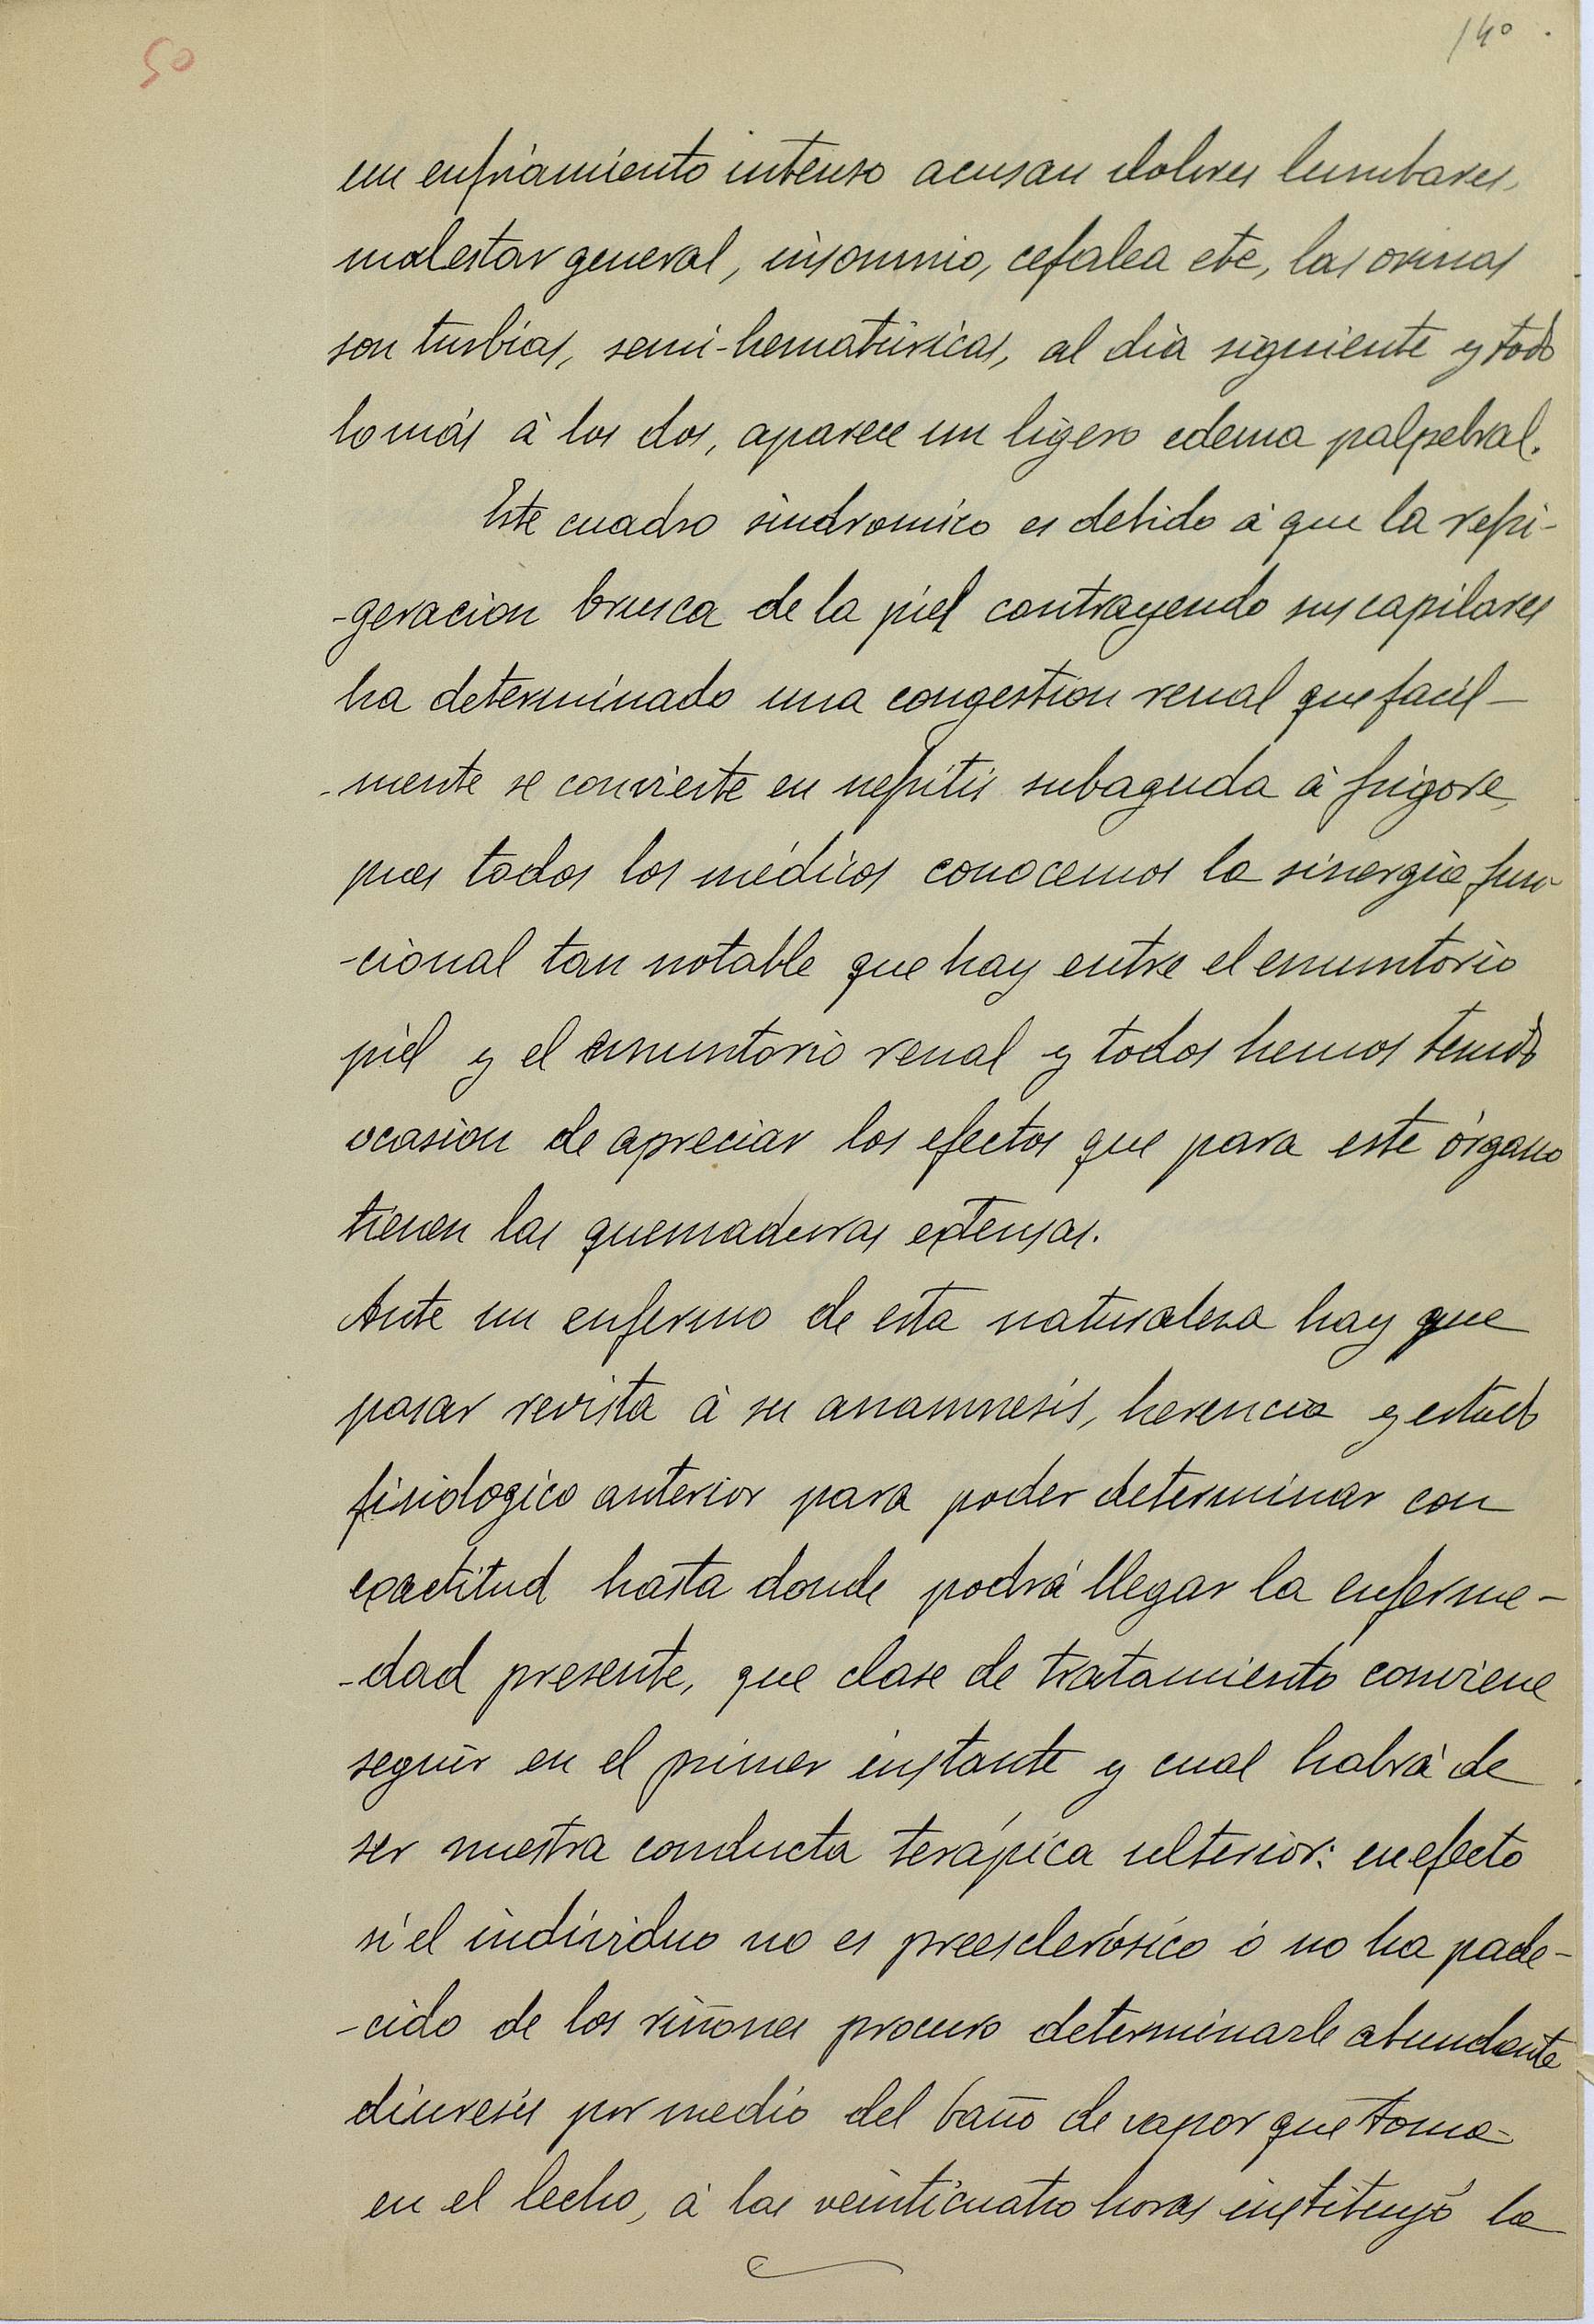 50
140.
un enfriamiento intenso acusan dolores lumbares,
malestar general, insomnio, cefalea etc, las orinas
son turbias, semi-hematúricas, al dia siguiente y todo
lo más à los dos, aparece un ligero edema palpebral.
Este cuadro sindromico es debido à que la refri-
-geracion brusca de la piel contrayendo sus capilares
ha determinado una congestion renal que facil-
-mente se convierte en nefritis subaguda à frigore,
pues todos los médicos conocemos la sinergia fun-
-cional tan notable que hay entre el emuntorio
piel y el emuntorio renal y todos hemos tenido
ocasion de apreciar los efectos que para este órgano
tienen las quemaduras extensas.
Ante un enfermo de esta naturaleza hay que
pasar revista à su anamnesis, herencia y estado
fisiologico anterior para poder determinar con
exactitud hasta donde podrá llegar la enferme-
-dad presente, que clase de tratamiento conviene
seguir en el primer instante y cual habrà de
ser nuestra conducta terápica ulterior: en efecto
si el individuo no es preesclerósico ó no ha pade-
-cido de los riñones procuro determinarle abundante
diuresis por medio del baño de vapor que toma
en el lecho, à las veinticuatro horas instituyó la